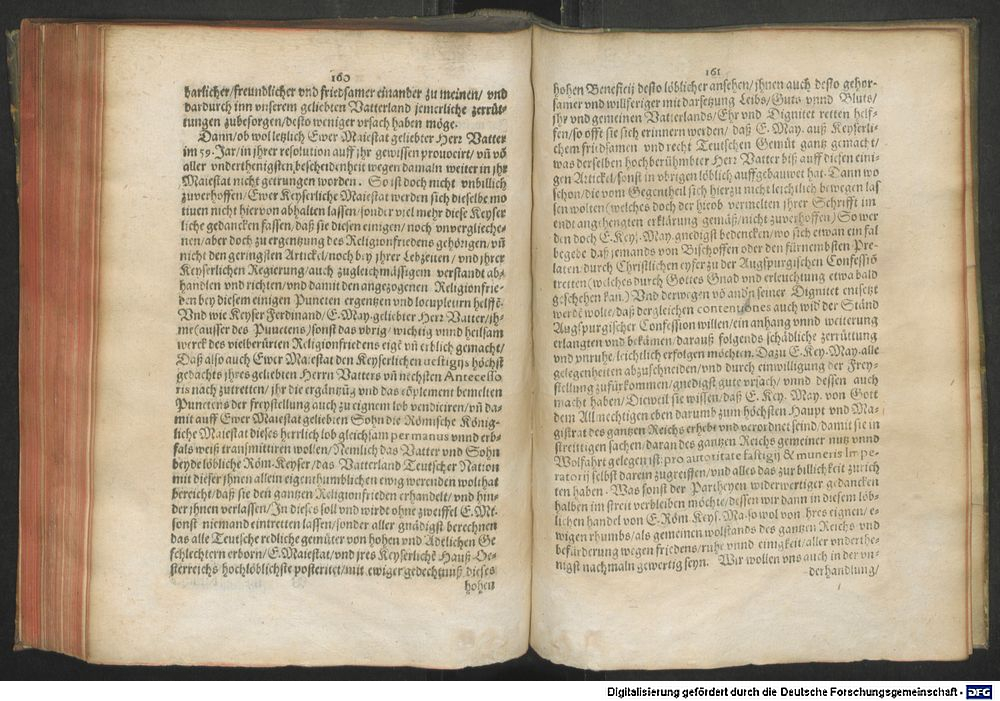 160
barlicher/freundlicher vnd friedsamer einander zu meinen/ vnd
dardurch inn vnserem geliebten Vatterland jemerliche zerrüt-
tungen zubesorgen/desto weniger vrsach haben möge.
Dann/ob wol letzlich Ewer Maiestat geliebter Herr Vatter
im 59. Jar/in jhrer resolution auff jhr gewissen prouocirt/ vn̄ vō
aller vnderthenigsten bescheidenheit wegen damaln weiter in jhr
Maiestat nicht getrungen worden. So ist doch nicht vnbillich
zuverhoffen/Ewer Keyserliche Maiestat werden sich dieselbe mo
tiuen nicht hiervon abhalten lassen/sonder viel mehr diese Keyser
liche gedancken fassen/daß sie diesen einigen/noch vnvergliche-
nen/aber doch zu ergentzung des Religionfriedens gehörigen/vn̄
nicht den geringsten Artickel/noch bey jhrer Lebzeiten/ vnd jhrer
Keyserlichen Regierung/auch zugleichmässigem verstandt ab-
handlen vnd richten/vnd damit den angezogenen Religionfrie-
den bey diesem einigen Puncten ergentzen vnd locupletirn helffē.
Vnd wie Keyser Ferdinand/E.May.geliebter Herr Vatter/jh-
me (ausser des Punctens)/sonst das vbrig/ wichtig vnnd heilsam
werck des vielberürten Religionfriedens eigē vn̄ erblich gemacht/
Daß also auch Ewer Maiestat den Keyserlichen uestigijs höchst
gedachts jhres geliebten Herrn Vatters vn̄ nechsten Antecesso
ris nach zutretten/ jhr die ergäntzūg vnd das cōplement bemelten
Punctens der freystellung auch zu eignem lob vendiciren/vn̄ da-
mit auff Ewer Maiestat geliebten Sohn die Römische König-
liche Maiestat dieses herrlich lob gleichsam per manus vnnd erb-
fals weiß transmittiren wollen/Nemlich das Vatter vnd Sohn
beyde löbliche Röm-Keyser/das Vatterland Teutscher Nation
mit dieser jhnen allein eigenthumblichen ewig werenden wolthat
bereicht/daß sie den gantzen Religionfrieden erhandelt/ vnd hin-
der jhnen verlassen/In dieses soll vnd wirdt ohne zweiffel E. Mt.
sonst niemand eintretten lassen/sonder aller gnädigst berechnen
das alle Teutsche redliche gemüter von hohen vnd Adelichen Ge
schlechtern erborn/E.Maiestat/vnd jres Keyserlichē Hauß Oe-
sterreichs hochlöblichste posteritet/mit ewiger gedechtnuß dieses
hohen
161
hohen Beneficij desto löblicher ansehen/jhnen auch desto gehor-
samer vnd willferiger mit darsetzung Leibs/Guts vnnd Bluts/
jhr vnd gemeinen Vatterlands/Ehr vnd Dignitet retten helf-
fen/so offt sie sich erinnern werden/ daß E. May. auß Keyserli-
chem friedsamen vnd recht Teutschen Gemüt gantz gemacht/
was derselben hochberühmbter Herr Vatter biß auff diesen eini-
gen Artickel/sonst in vbrigen löblich auffgebauwet hat. Dann wo
schon/die vom Gegentheil sich hierzu nicht leichtlich bewegen las
sen wolten (welches doch der hieob vermelten jhrer Schrifft im
endt angehengten erklärung gemäß/nicht zuverhoffen) So wer
den doch E. Key. May. gnedigst bedencken/wo sich etwan ein fal
begebe daß jemands von Bischoffen oder den fürnembsten Pre-
laten/durch Christlichen eyfer zu der Augspurgischen Confessiō
tretten (welches durch Gottes Gnad vnd erleuchtung etwa bald
geschehen kan.) Vnd derwegen vō andn seiner Dignitet entsetzt
werdē wolte/daß dergleichen contentiones auch wid der Ständ
Augspurgischer Confession willen/ein anhang vnnd weiterung
erlangten vnd bekämen/darauß folgends schädliche zerrüttung
vnd vnruhe/leichtlich erfolgen möchten. Dazu E. Key. May. alle
gelegenheiten abzuschneiden/vnd durch einwilligung der Frey-
stellung zufürkommen/gnedigst gute vrsach/ vnnd dessen auch
macht haben/Dieweil sie wissen/daß E. Key. May. von Gott
dem Allmechtigen eben darumb zum höchsten Haupt vnd Ma-
gistrat des gantzen Reichs erhebt vnd verordnet seind/damit sie in
streittigen sachen/daran des gantzen Reichs gemeiner nutz vnnd
Wolfahrt gelegen ist: pro autoritate fastigij & muneris Impe-
ratorij selbst darein zugreiffen/vnd alles das zur billichkeit zurich
ten haben. Was sonst der Partheyen widerwertiger gedancken
halben im streit verbleiben möchte/dessen wir dann in diesem löb-
lichen handel von E. Röm. Keys. Ma. so wol von jhres eignen/e-
wigen rhumbs/als gemeinen wolstands des gantzen Reichs vnd
befürderung wegen friedens/ruhe vnnd einigkeit/aller vnderthe-
nigst nachmaln gewertig seyn. Wir wollen vns auch in der vn-
derhandlung/
Digitalisierung gefördert durch die Deutsche Forschungsgemeinschaft - DFG